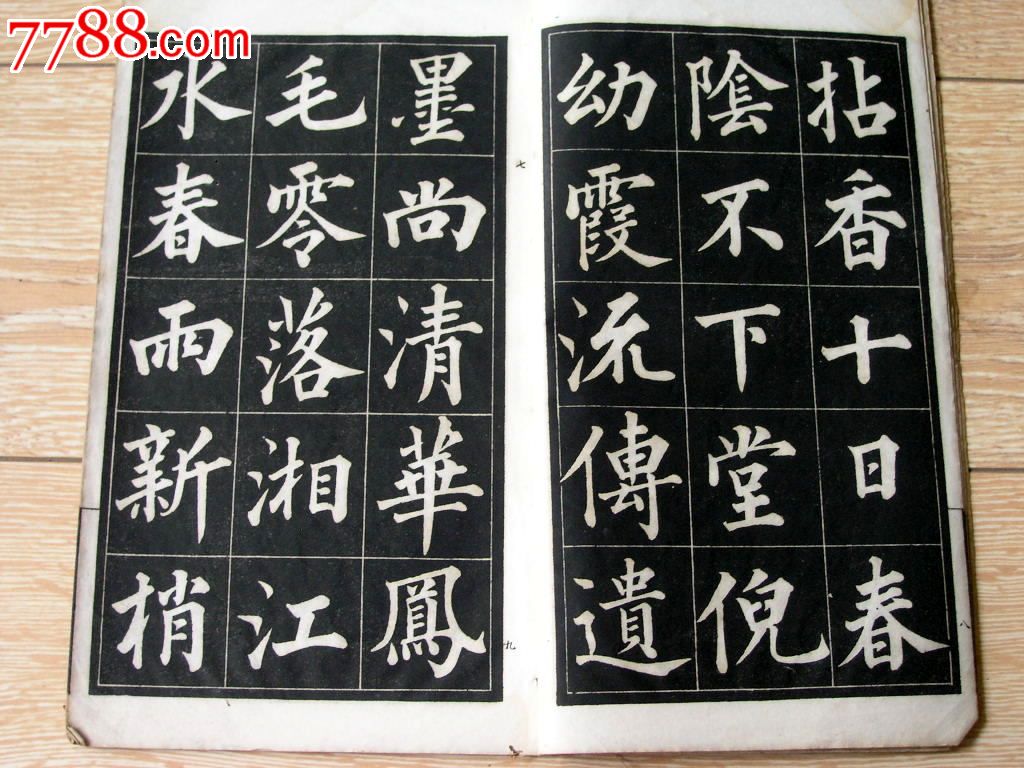 7788.com
拈香十日春
陰不下堂倪
幼霞流傳遺
墨尚清華鳳
毛零落湘江
水春雨新梢
七
九